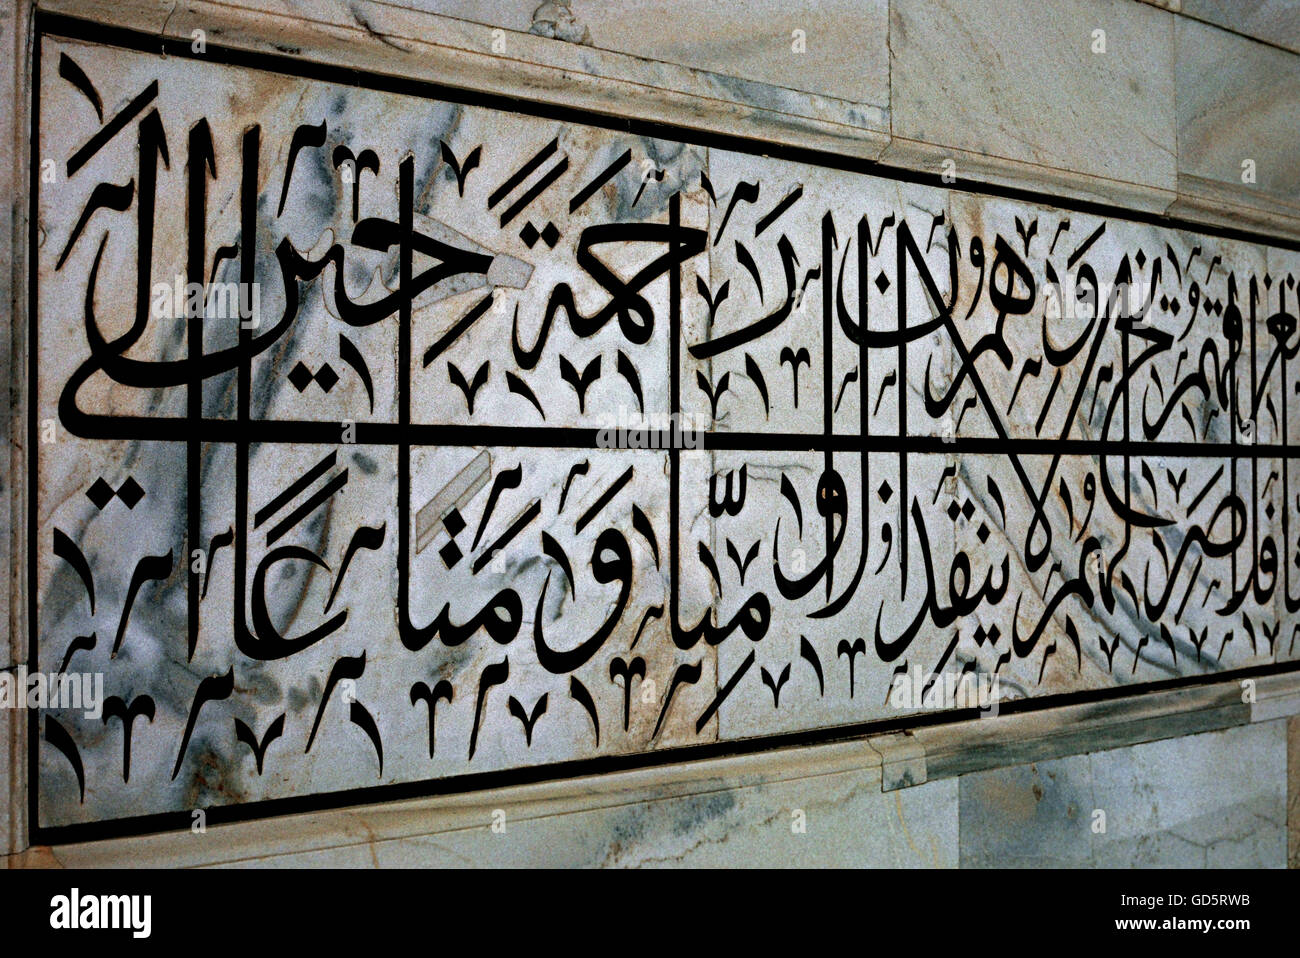 نغرقهم فلا صريخ لهم ولا هم ينقذون الا رحمة منا ومتاعا الى حين
alamy
Image ID: GD5RWB
www.alamy.com